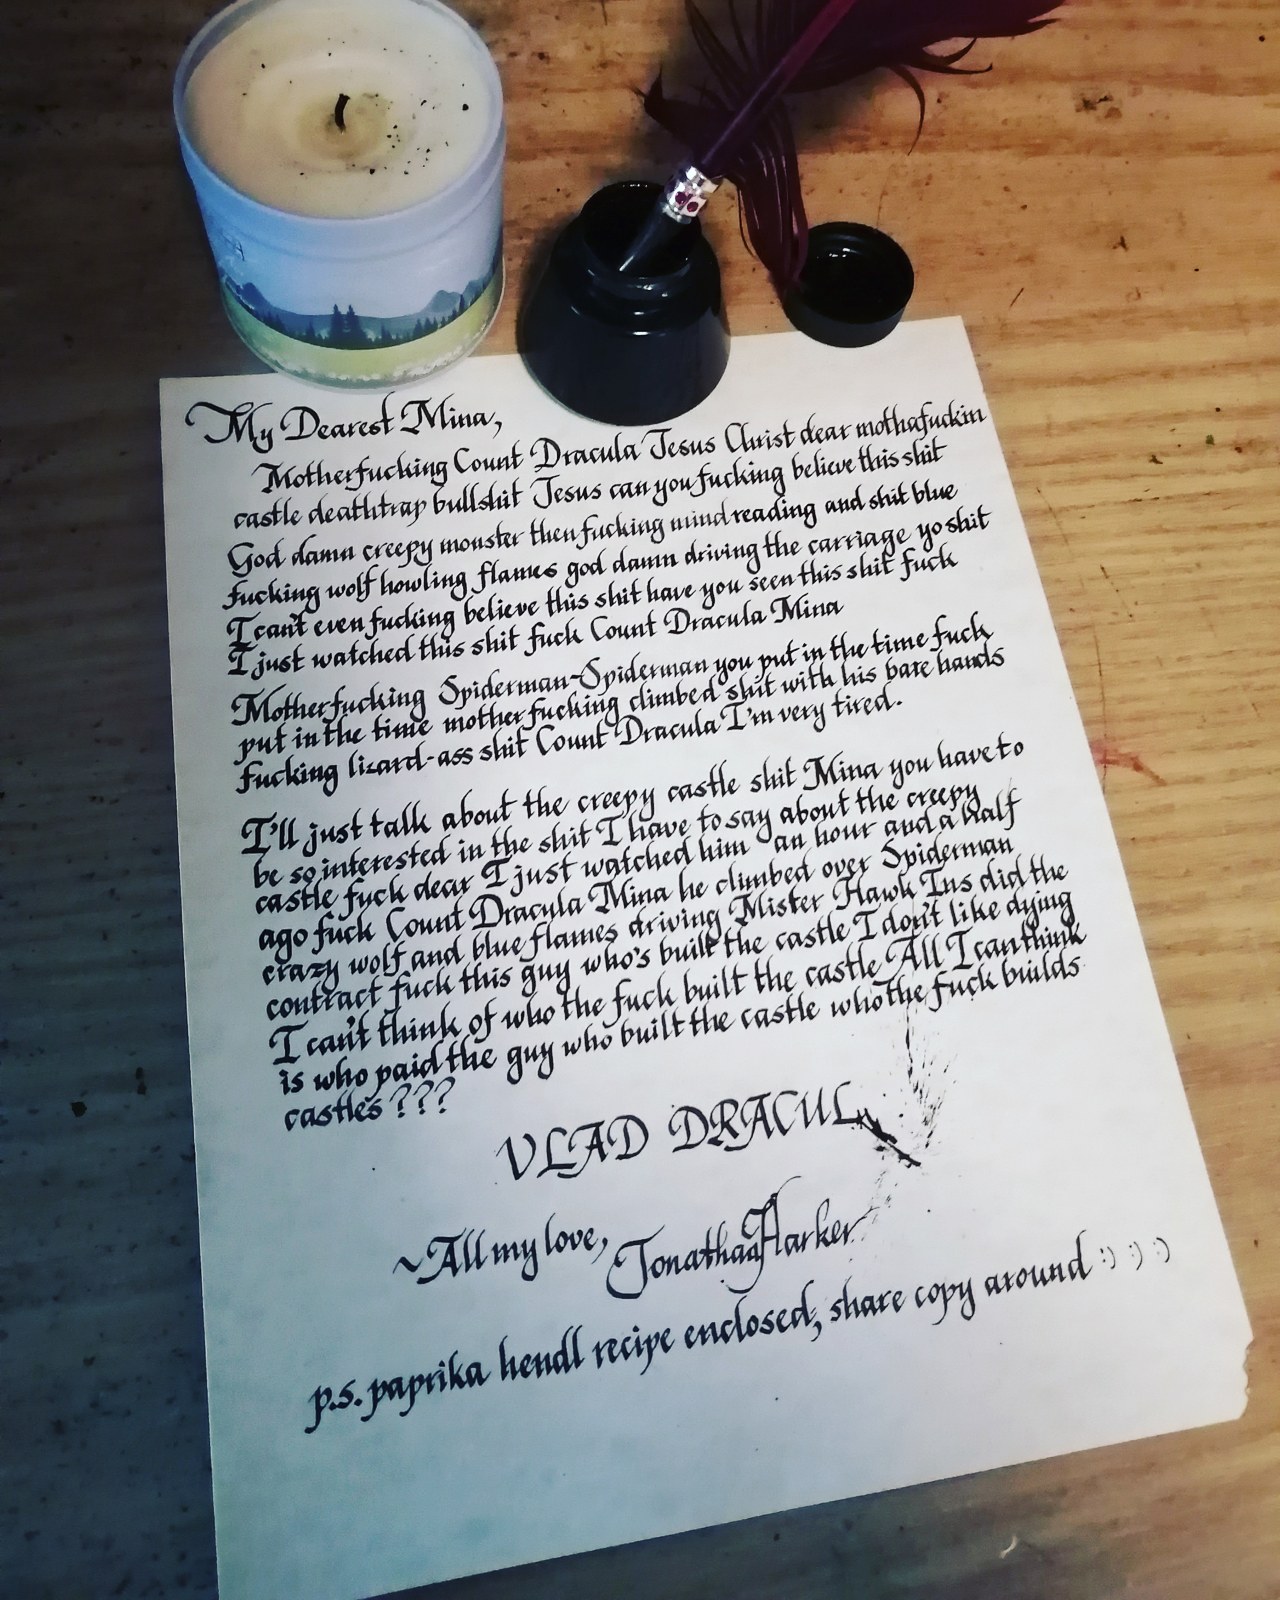 My Dearest Mina,
Motherfucking Count Dracula Jesus Christ dear mothafuckin
castle deathtrap bullshit Jesus can you fucking believe this shit
God damn creepy monster then fucking mind reading and shit blue
fucking wolf howling flames god damn driving the carriage yo shit
I can't even fucking believe this shit have you seen this shit fuck
I just watched this shit fuck Count Dracula Mina
Motherfucking Spiderman-Spiderman you put in the time fuck
put in the time motherfucking climbed shit with his bare hands
fucking lizard-ass shit Count Dracula I'm very tired.
I'll just talk about the creepy castle shit Mina you have to
be so interested in the shit I have to say about the creepy
castle fuck dear I just watched him an hour and a half
ago fuck Count Dracula Mina he climbed over Spiderman
crazy wolf and blue flames driving Mister Hawk Ins did the
contract fuck this guy who's built the castle I don't like dying
I can't think of who the fuck built the castle All I can think
is who paid the guy who built the castle who the fuck builds
castles ???
VLAD DRACUL
~All my love, Jonathan Harker
p.s. paprika hendl recipe enclosed, share copy around :) :) :)